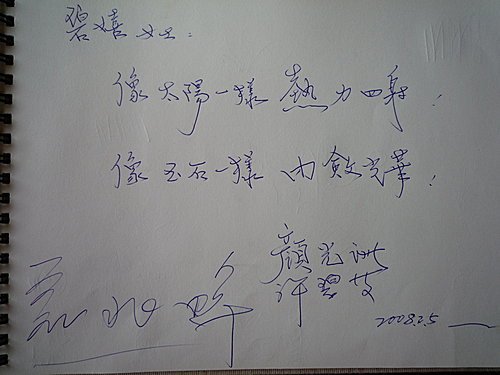 碧嬉女士:
像太陽一樣 熱力四射!
像玉石一樣 內斂光華!
顏光
許碧
2008.5